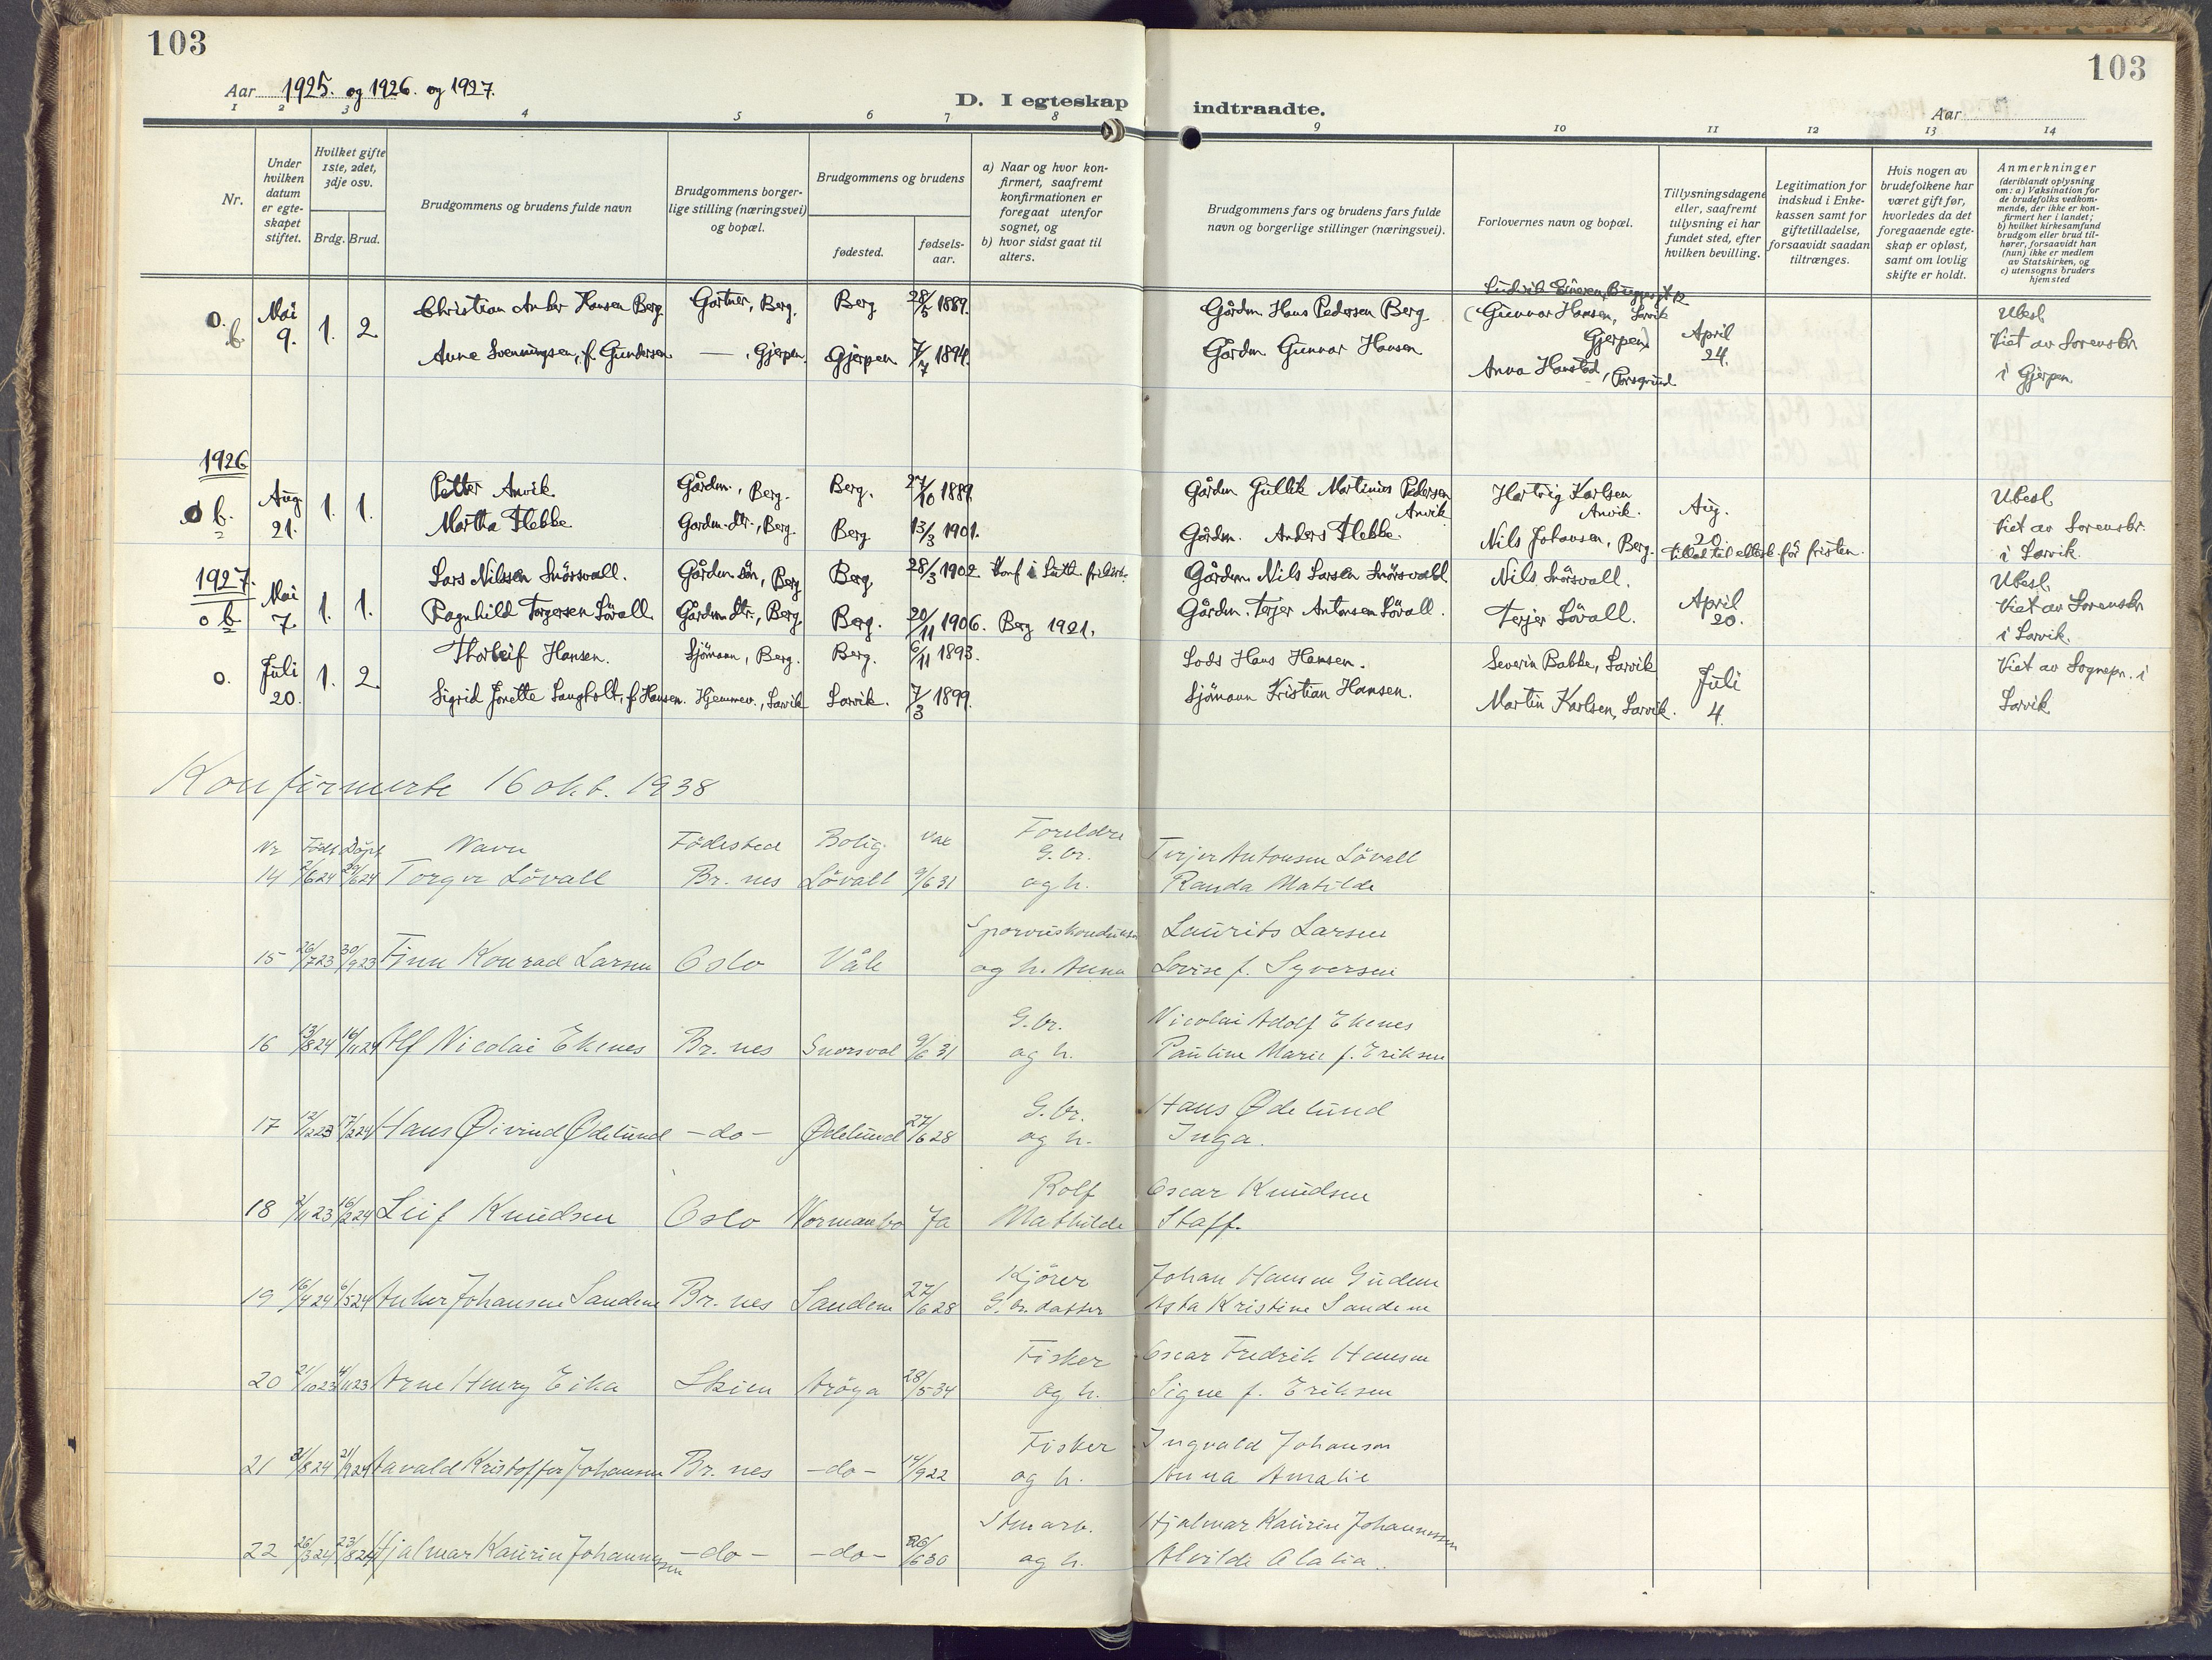 103
103
Aar 1925. og 1926. og 1927.
D. I egteskap indtraadte.
Aar
1 2 3 4 5 6 7 8 9 10 11 12 13 14
Nr.
Under hvilken datum er egteskapet stiftet.
Hvilket gifte 1ste, 2det, 3dje osv.
Brdg. Brud.
Brudgommens og brudens fulde navn
Brudgommens borgerlige stilling (næringsvei) og bopæl.
Brudgommens og brudens
fødested.
fødselsaar.
a) Naar og hvor konfirmert, saafremt konfirmationen er foregaat utenfor sognet, og
b) hvor sidst gaat til alters.
Brudgommens fars og brudens fars fulde navn og borgerlige stillinger (næringsvei).
Forlovernes navn og bopæl.
Tillysningsdagene eller, saafremt tillysning ei har fundet sted, efter hvilken bevilling.
Legitimation for indskud i Enkekassen samt for giftetilladelse, forsaavidt saadan tiltrænges.
Hvis nogen av brudefolkene har været gift før, hvorledes da det foregaaende egteskap er opløst, samt om lovlig skifte er holdt.
Anmerkninger
(deriblandt oplysning om: a) Vaksination for de brudefolks vedkommende, der ikke er konfirmert her i landet; b) hvilket kirkesamfund brudgom eller brud tilhører, forsaavidt han (hun) ikke er medlem av Statskirken, og c) utensogns bruders hjemsted
o. b. Mai 9. 1. 2. Christian Hansen Berg Gartner, Berg. Berg 28/5 1889. Gårdm. Hans Pedersen Berg (Gunnar Hansen, Larvik Gjerpen) April 24. Ubesl.
Anne Svenningsen, f. Gundersen — , Gjerpen. Gjerpen 7/7 1894. Gårdm. Gunnar Hansen Anna Hanstad, Porsgrund Viet av Sorenskr. i Gjerpen.
1926
b. Aug 21. 1. 1. Petter Anvik. Gårdm., Berg. Berg. 27/10 1889 Gårdm Gullik Martinius Pedersen Anvik Hartvig Karlsen Anvik. Aug. 20. Ubesl.
Martha Hebbe. Gårdm.dtr., Berg. Berg 13/3 1901. Gårdm. Anders Hebbe. Nils Johansen, Berg. för fristen. Viet av Sorenskr. i Larvik.
1927.
o b Mai 7. 1. 1. Lars Nilsen Snörsvall. Gårdm. sön, Berg Berg 28/3 1902 Konf i Luth. frikirk. Gårdm. Nils Larsen Snörsvall Nils Snörsvall. April 20. Ubesl.
Ragnhild Torgersen Lövall. Gårdm.dtr., Berg. Berg. 20/11 1906. Berg 1921. Gårdm. Terjer Antonsen Lövall. Terjer Lövall. Viet av Sorenskr i Larvik.
o. Juli 20. 1. 2. Thorleif Hansen. Sjömann, Berg. Berg. 6/11 1893. Lods Hans Hansen. Severin Babbe, Larvik Juli 4. Viet av Sognepr. i
Sigrid Jonette Langholt, f. Hansen. Hjemmev., Larvik Larvik. 7/3 1899. Sjömann Kristian Hansen. Martin Karlsen, Larvik. Larvik.
Konfirmerte 16 okt. 1938
Nr Född Döpt Navn Födested Bolig Vak Foreldre
G.br. Terjer Antonsen Lövall
14 2/6 24 29/6 24 Torger Lövall Br.nes Lövall 9/6 31 og h. Randa Matilde
Laurits Larsen
15 26/7 23 30/9 23 Finn Konrad Larsen Oslo Våle og h. Anna Lovise f. Syversen
G.br. Nicolai Adolf Ekenes
16 13/8 24 16/11 24 Alf Nicolai Ekenes Br.nes Snorsvol 9/6 31 og h. Pauline Marie f. Eriksen
G.br. Hans Ødelund
17 12/12 23 17/2 24 Hans Øivind Ødelund -do- Ødelund 27/6 28 og h. Inga.
Rolf Oscar Knudsen
18 2/11 23 16/2 24 Leif Knudsen Oslo Normanbo Ja Mathilde Staff.
Kjörer Johan Hansen Gudem
19 16/4 24 6/5 24 Anker Johansen Sandene Br.nes Sandene 27/6 28 G.br. datter Asta Kristine Sandene
Fisker Oscar Fredrik Hansen
20 21/10 23 4/11 23 Arne Henry Eika Skien Aröya 28/5 34 og h. Signe f. Eriksen
Fisker Ingvald Johansen
21 31/8 24 21/9 24 Havald Kristoffer Johansen Br.nes -do- 14/9 22 og h. Anna Amalie
Stenarb. Hjalmar Kaurin Johannessen
22 26/3 24 23/8 24 Hjalmar Kaurin Johannessen -do- -do- 26/6 30 og h. Alvilde Alalia.